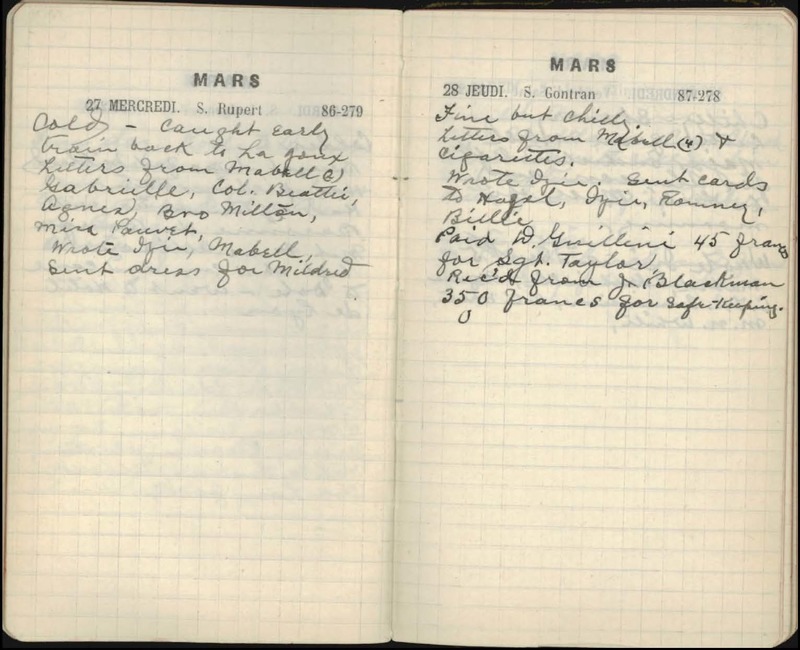 MARS
27 MERCREDI. S. Rupert 86-279
Cold - Caught early
train back to La Joux
Letters from Mabell
Gabrielle, Col. Beattie,
Agnes, Bro Milton,
Miss Pauvet,
Wrote Izie, Mabell.
Sent dress for Mildred
MARS
28 JEUDI. S. Gontran 87-278
Fine but chilly
Letters from Mabell (4) &
Cigarettes.
Wrote Izie. Sent cards
to Hazel, Izie, Romney,
Billie
Paid D. Guillini 45 francs
for Sgt. Taylor
Rec'd from J. Blackman
350 francs for Safe-Keeping.